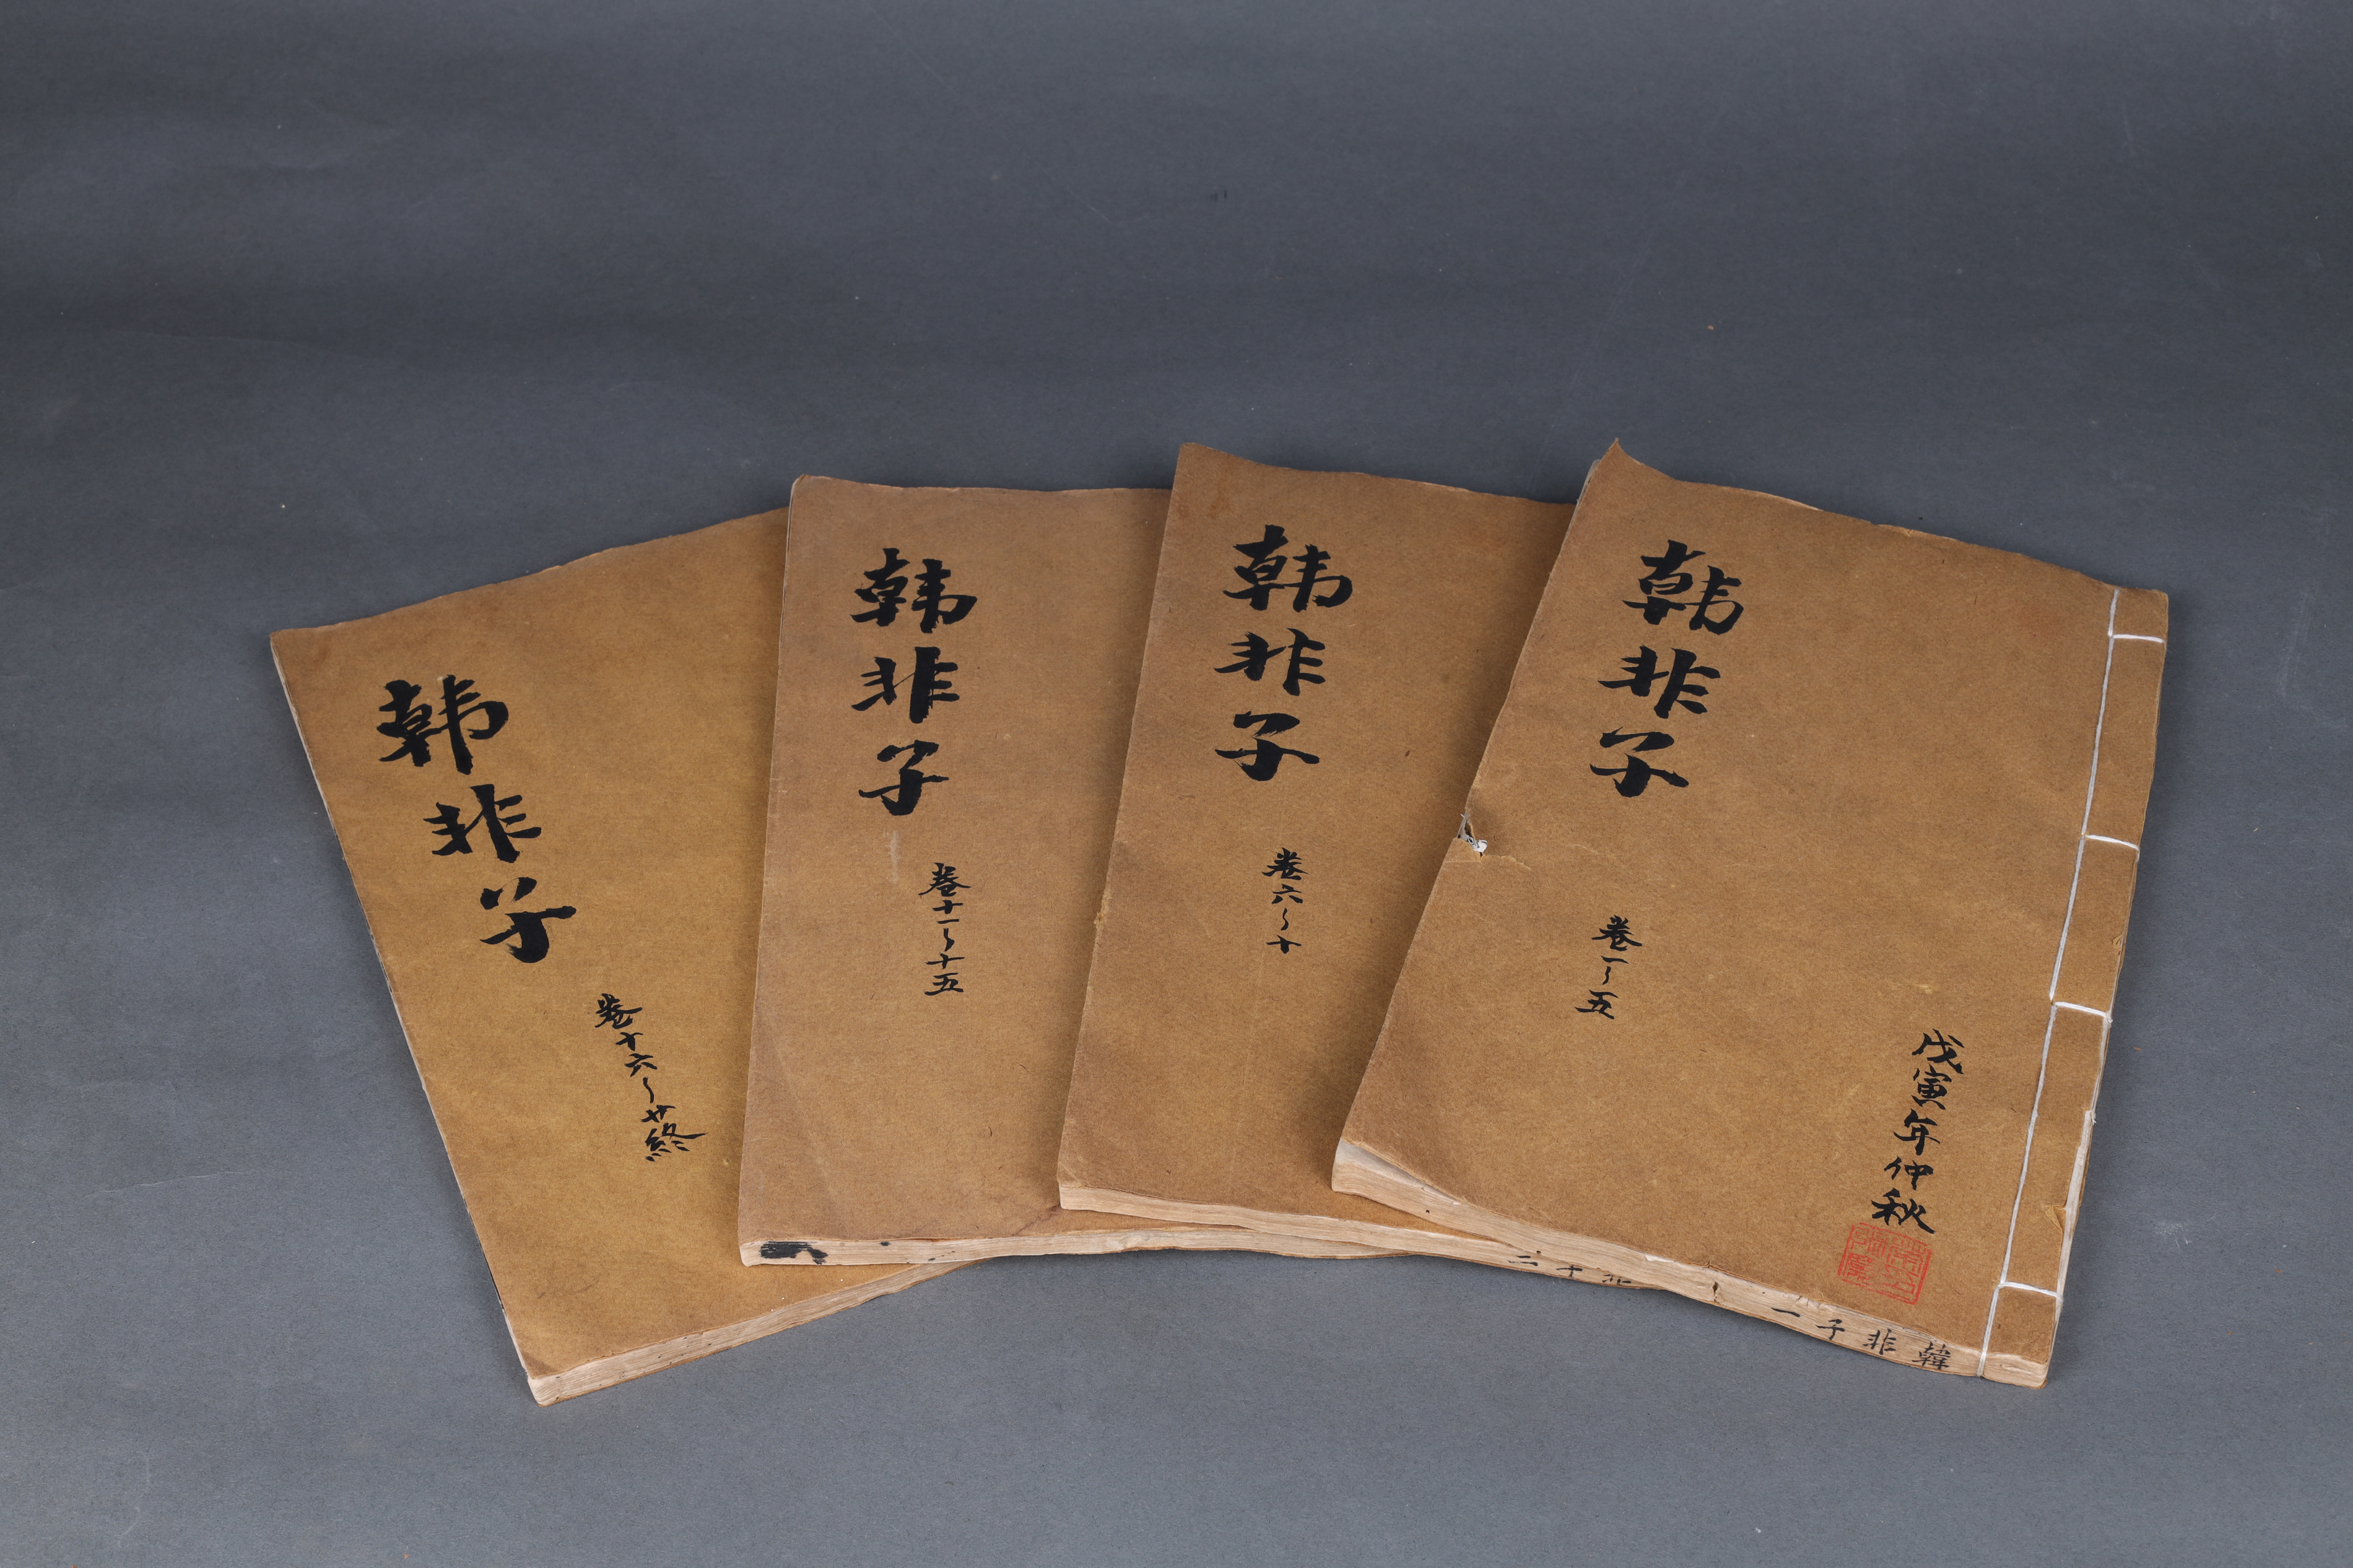 韩非子
卷一~五
戊寅年仲秋
韓非子一
韩非子
卷六~十
非子二
韩非子
卷十一~十五
韩非子
卷十六~廿終